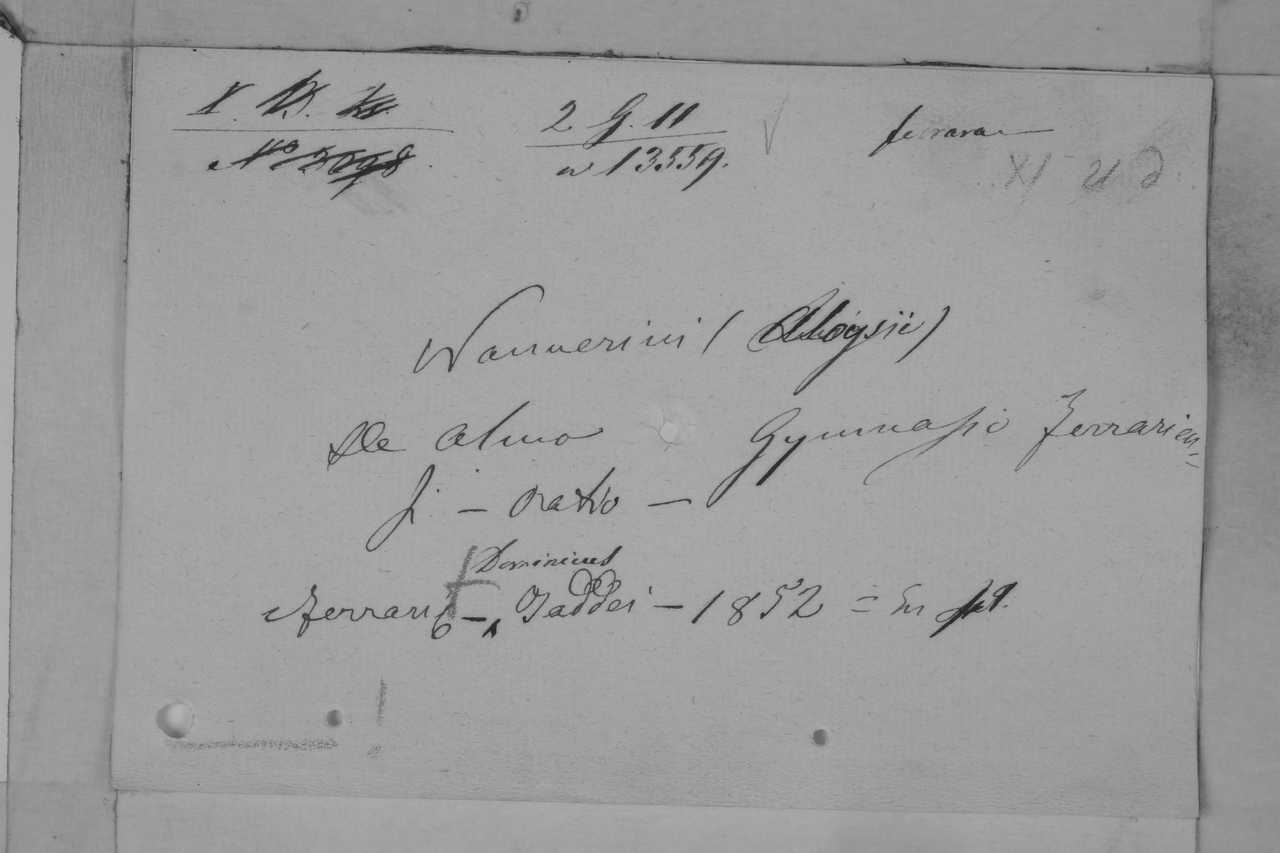 2 G. 11
n 13559.
ferrara
Nannerini (Aloysii)
De almo Gymnasio Ferrarien=
si - Oratio -
Dominicus
Ferrariæ - Taddei - 1852 = In